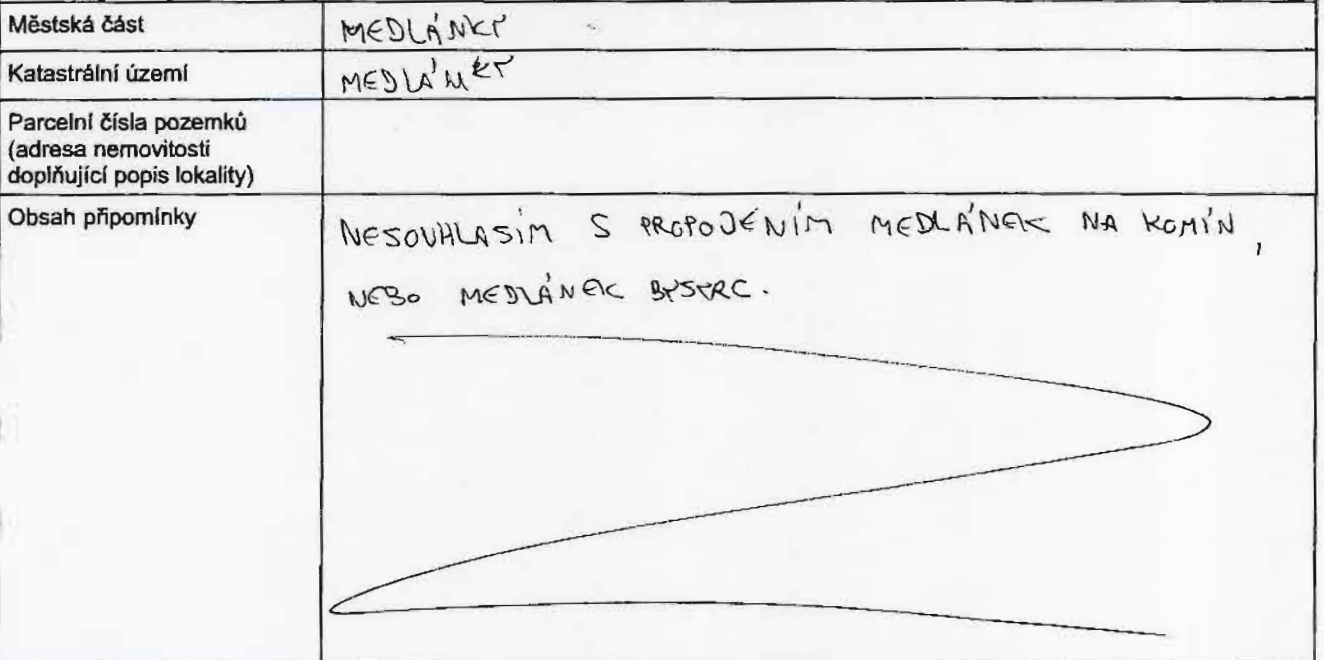 Městská část MEDLÁNKY
Katastrální území MEDLÁNKY
Parcelní čísla pozemků
(adresa nemovitosti
doplňující popis lokality)
Obsah připomínky NESOUHLASÍM S PROPOJENÍM MEDLÁNEK NA KOMÍN,
NEBO MEDLÁNEK BYSTRC.